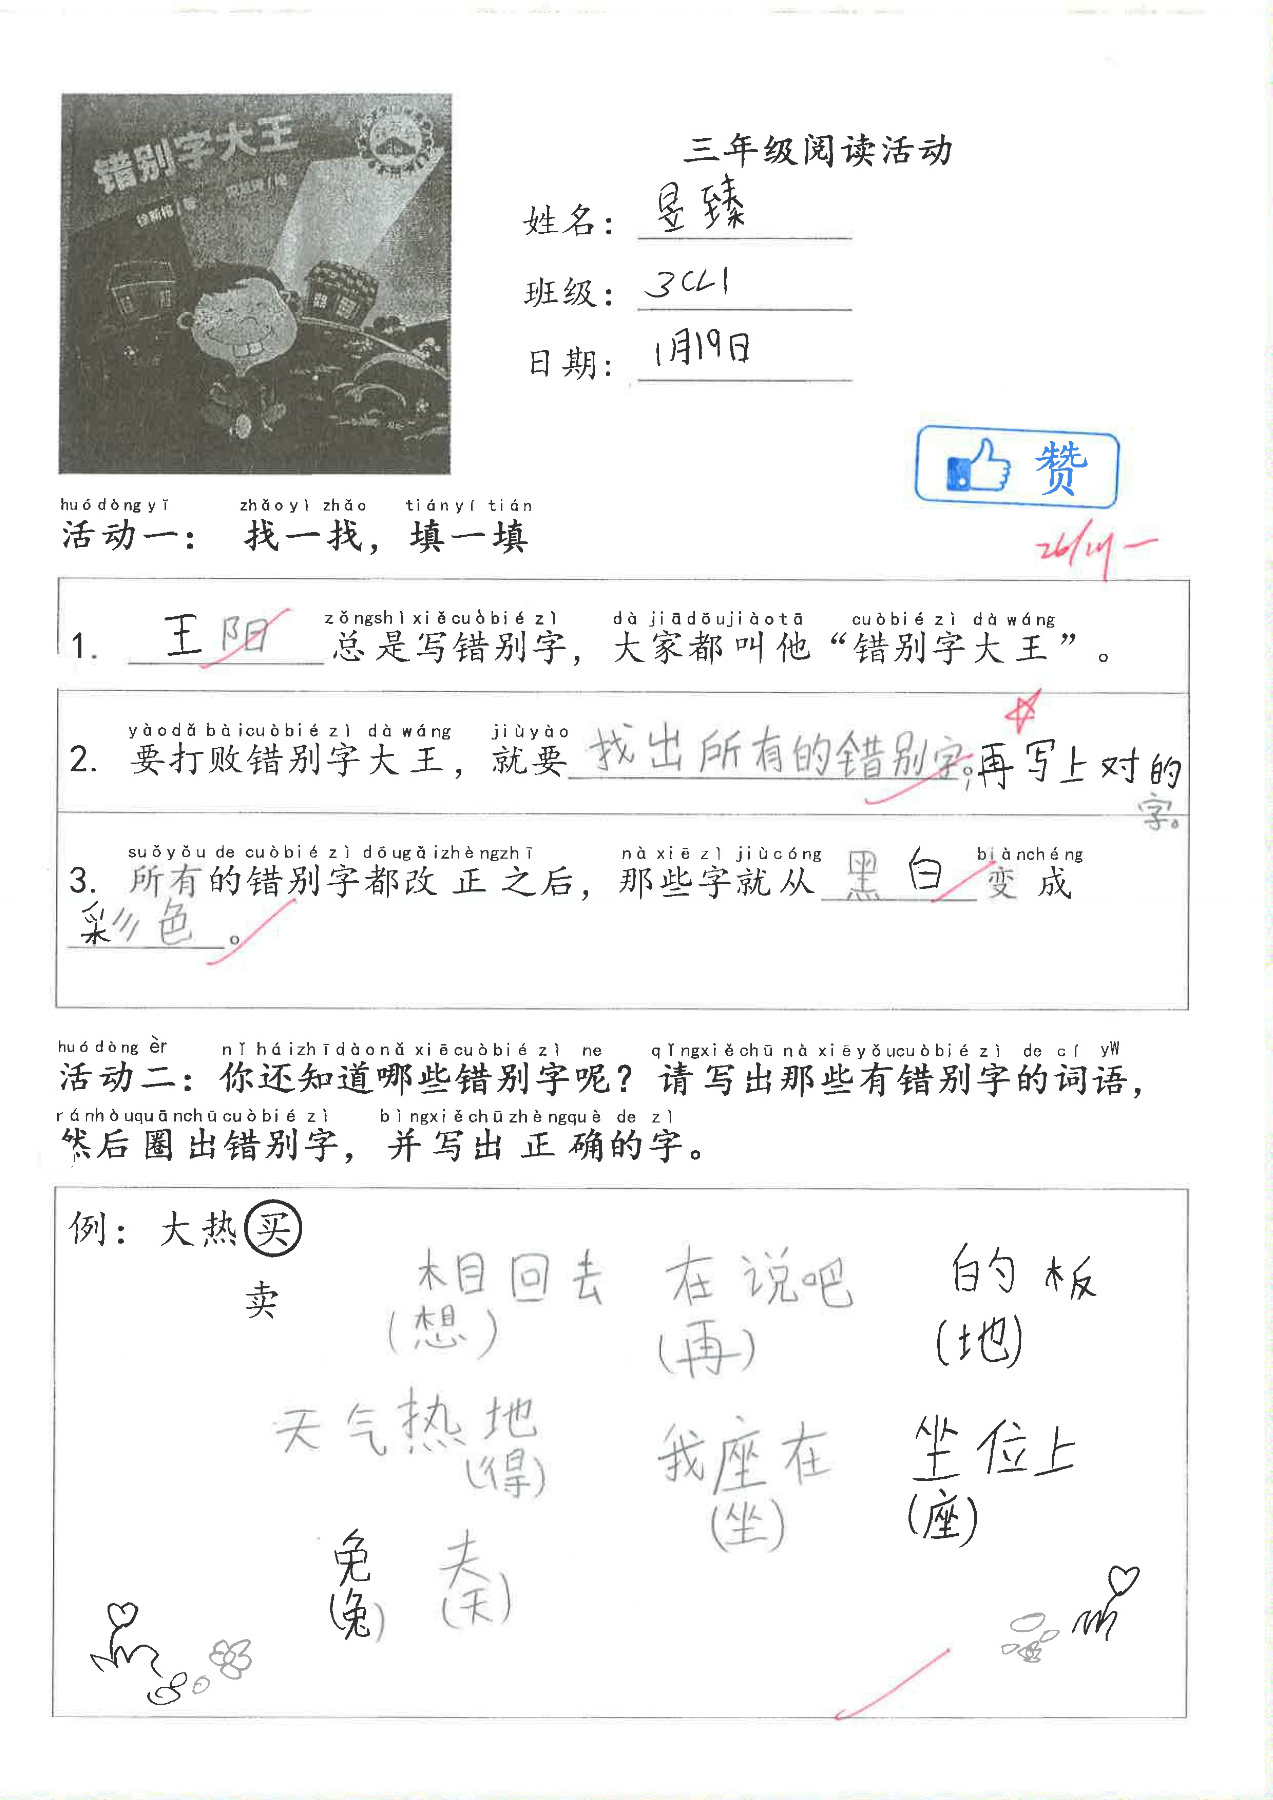 错别字大王
徐新格|著
三年级阅读活动
姓名：昱臻
班级：3CL1
日期：1月19日
赞
huó dòng yī zhǎo yì zhǎo tián yí tián
活动一： 找一找，填一填
zǒng shì xiě cuò bié zì dà jiā dōu jiào tā cuò bié zì dà wáng
1. 王阳总是写错别字，大家都叫他“错别字大王”。
yào dǎ bài cuò bié zì dà wáng jiù yào
2. 要打败错别字大王，就要找出所有的错别字，再写上对的
字。
suǒ yǒu de cuò bié zì dōu gǎi zhèng zhī nà xiē zì jiù cóng biàn chéng
3. 所有的错别字都改正之后，那些字就从黑白变成
彩色。
huó dòng èr nǐ hái zhī dào nǎ xiē cuò bié zì ne qǐng xiě chū nà xiē yǒu cuò bié zì de cí yW
活动二：你还知道哪些错别字呢？请写出那些有错别字的词语，
rán hòu quān chū cuò bié zì bìng xiě chū zhèng què de zì
然后圈出错别字，并写出正确的字。
例：大热买
卖
相回去 在说吧 的板
(想) (再) (地)
天气热地 我座在 坐位上
(得) (坐) (座)
免 夫
(兔) (天)